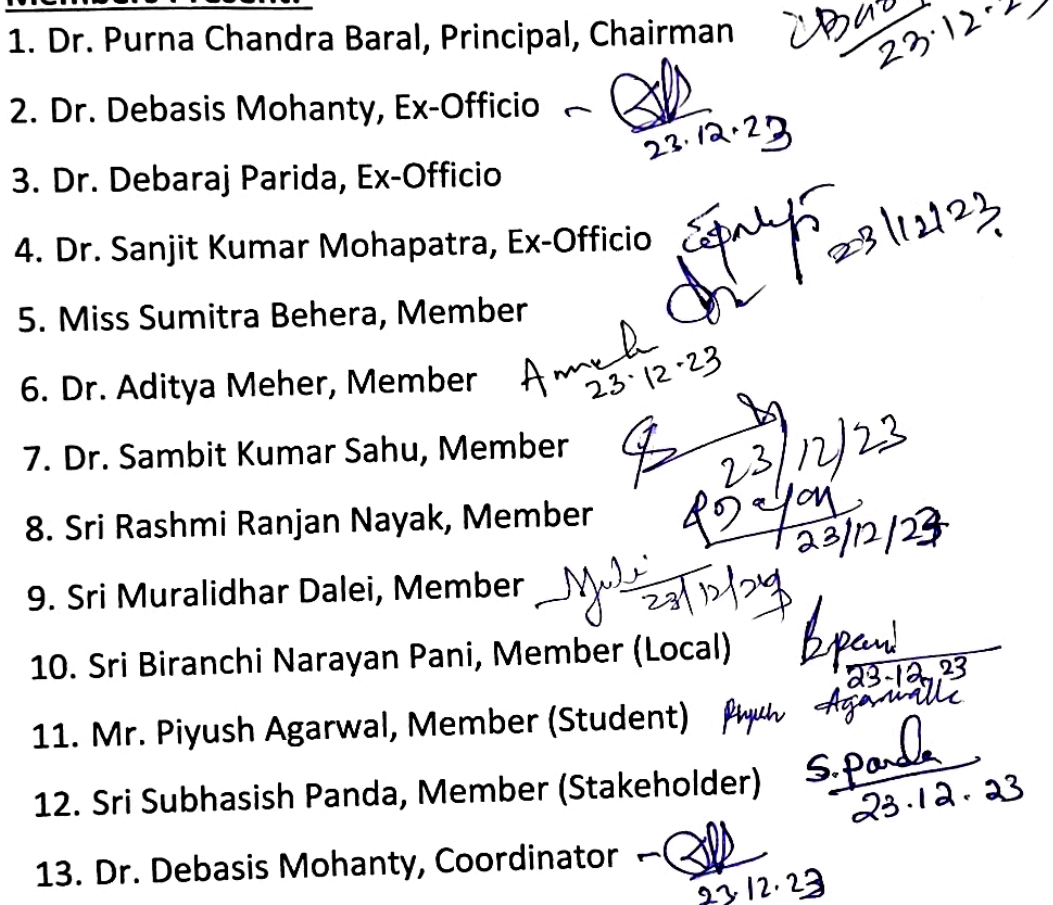 Members Present:
1. Dr. Purna Chandra Baral, Principal, Chairman
23.12.23
2. Dr. Debasis Mohanty, Ex-Officio -
23.12.23
3. Dr. Debaraj Parida, Ex-Officio
4. Dr. Sanjit Kumar Mohapatra, Ex-Officio
23/12/23
5. Miss Sumitra Behera, Member
6. Dr. Aditya Meher, Member
23.12.23
7. Dr. Sambit Kumar Sahu, Member
23/12/23
8. Sri Rashmi Ranjan Nayak, Member
23/12/23
9. Sri Muralidhar Dalei, Member
10. Sri Biranchi Narayan Pani, Member (Local) Bpani
23-12-23
11. Mr. Piyush Agarwal, Member (Student) Piyush Agarwalla
12. Sri Subhasish Panda, Member (Stakeholder) S. Panda
23.12.23
13. Dr. Debasis Mohanty, Coordinator -
23.12.23